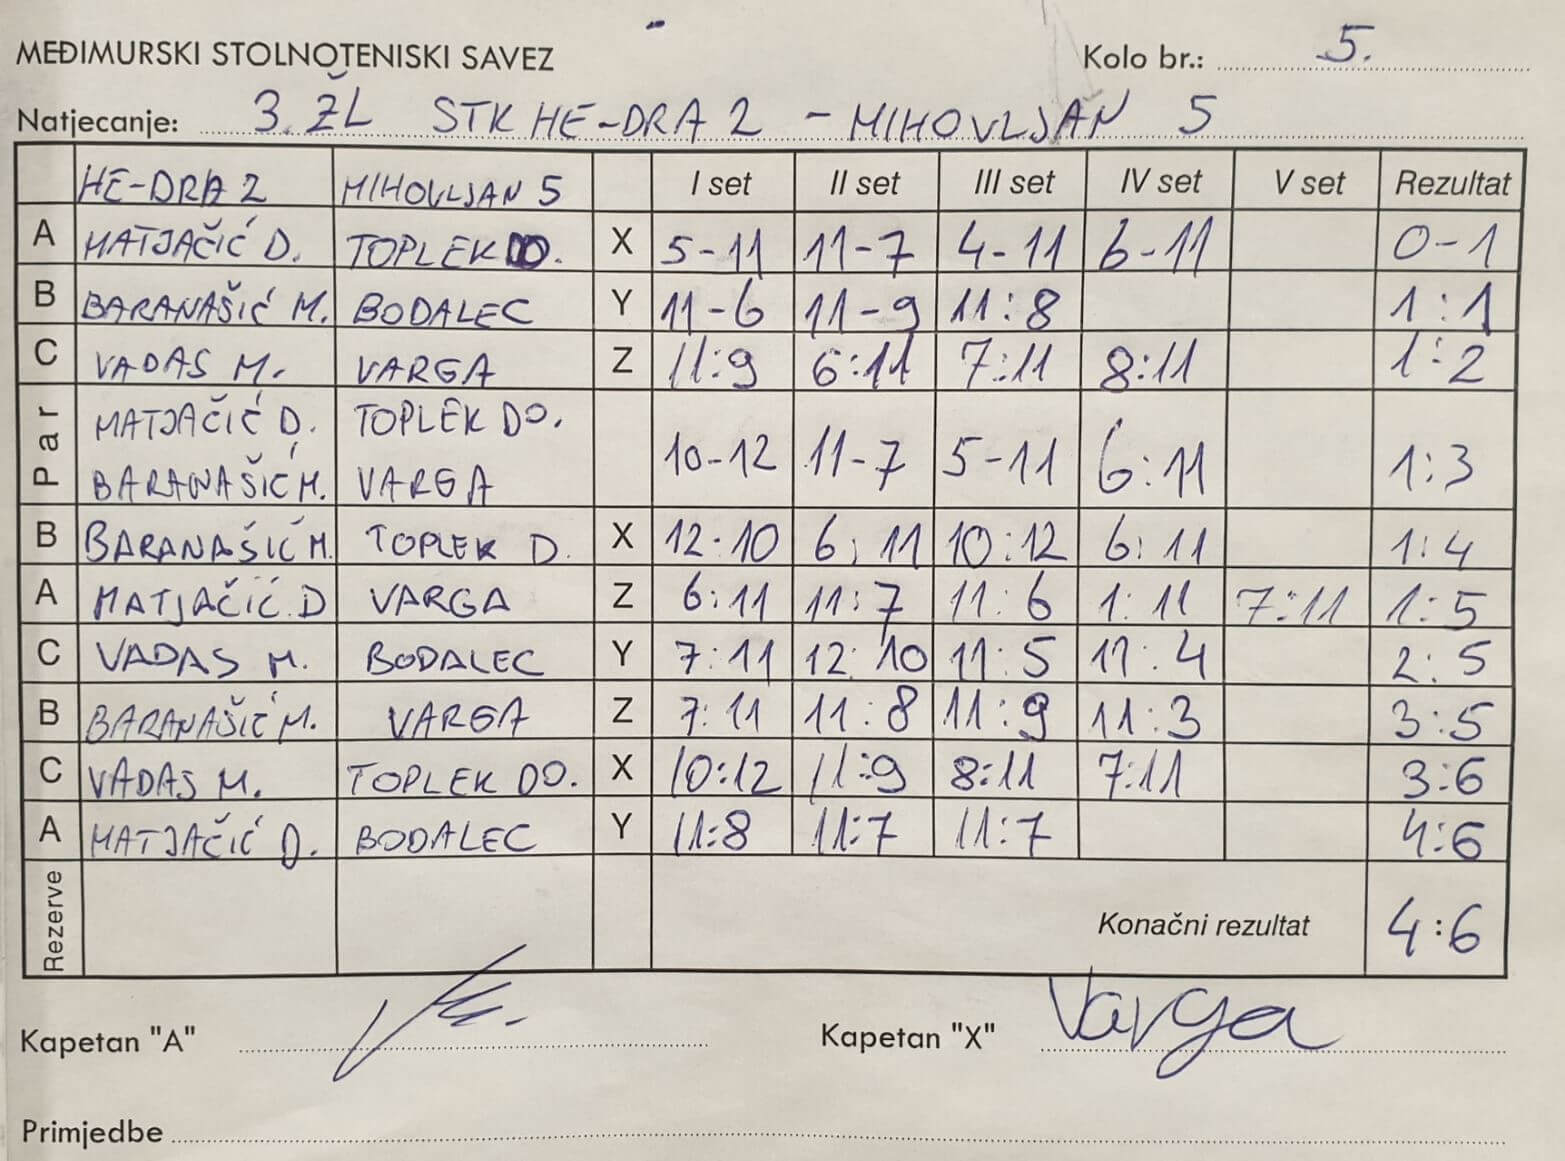 MEĐIMURSKI STOLNOTENISKI SAVEZ Kolo br.: 5.
Natjecanje: 3. ŽL STK HE-DRA 2 - MIHOVLJAN 5
HE-DRA 2 MIHOVLJAN 5 I set II set III set IV set V set Rezultat
A MATJAČIĆ D. TOPLEK DO. X 5-11 11-7 4-11 6-11 0-1
B BARANAŠIĆ M. BODALEC Y 11-6 11-9 11:8 1:1
C VADAS M. VARGA Z 11:9 6:11 7:11 8:11 1:2
Par MATJAČIĆ D. TOPLEK DO. 10-12 11-7 5-11 6:11 1:3
BARANAŠIĆ M. VARGA
B BARANAŠIĆ M. TOPLEK D. X 12·10 6:11 10:12 6:11 1:4
A MATJAČIĆ D VARGA Z 6:11 11:7 11:6 1:11 7:11 1:5
C VADAS M. BODALEC Y 7:11 12:10 11:5 11:4 2:5
B BARANAŠIĆ M. VARGA Z 7:11 11:8 11:9 11:3 3:5
C VADAS M. TOPLEK DO. X 10:12 11:9 8:11 7:11 3:6
A MATJAČIĆ D. BODALEC Y 11:8 11:7 11:7 4:6
Rezerve Konačni rezultat 4:6
Kapetan "A" Kapetan "X" Varga
Primjedbe